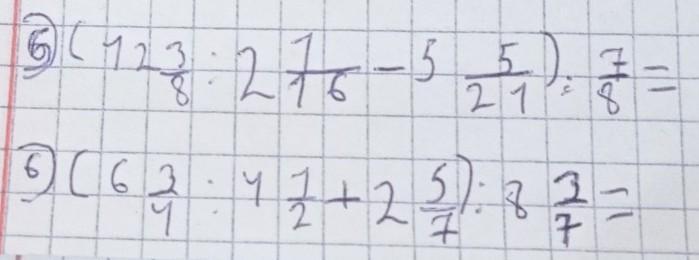 5) (12 3/8 : 2 1/16 - 5 5/21) : 7/8 =
6) (6 3/4 : 4 1/2 + 2 5/7) : 8 3/7 =